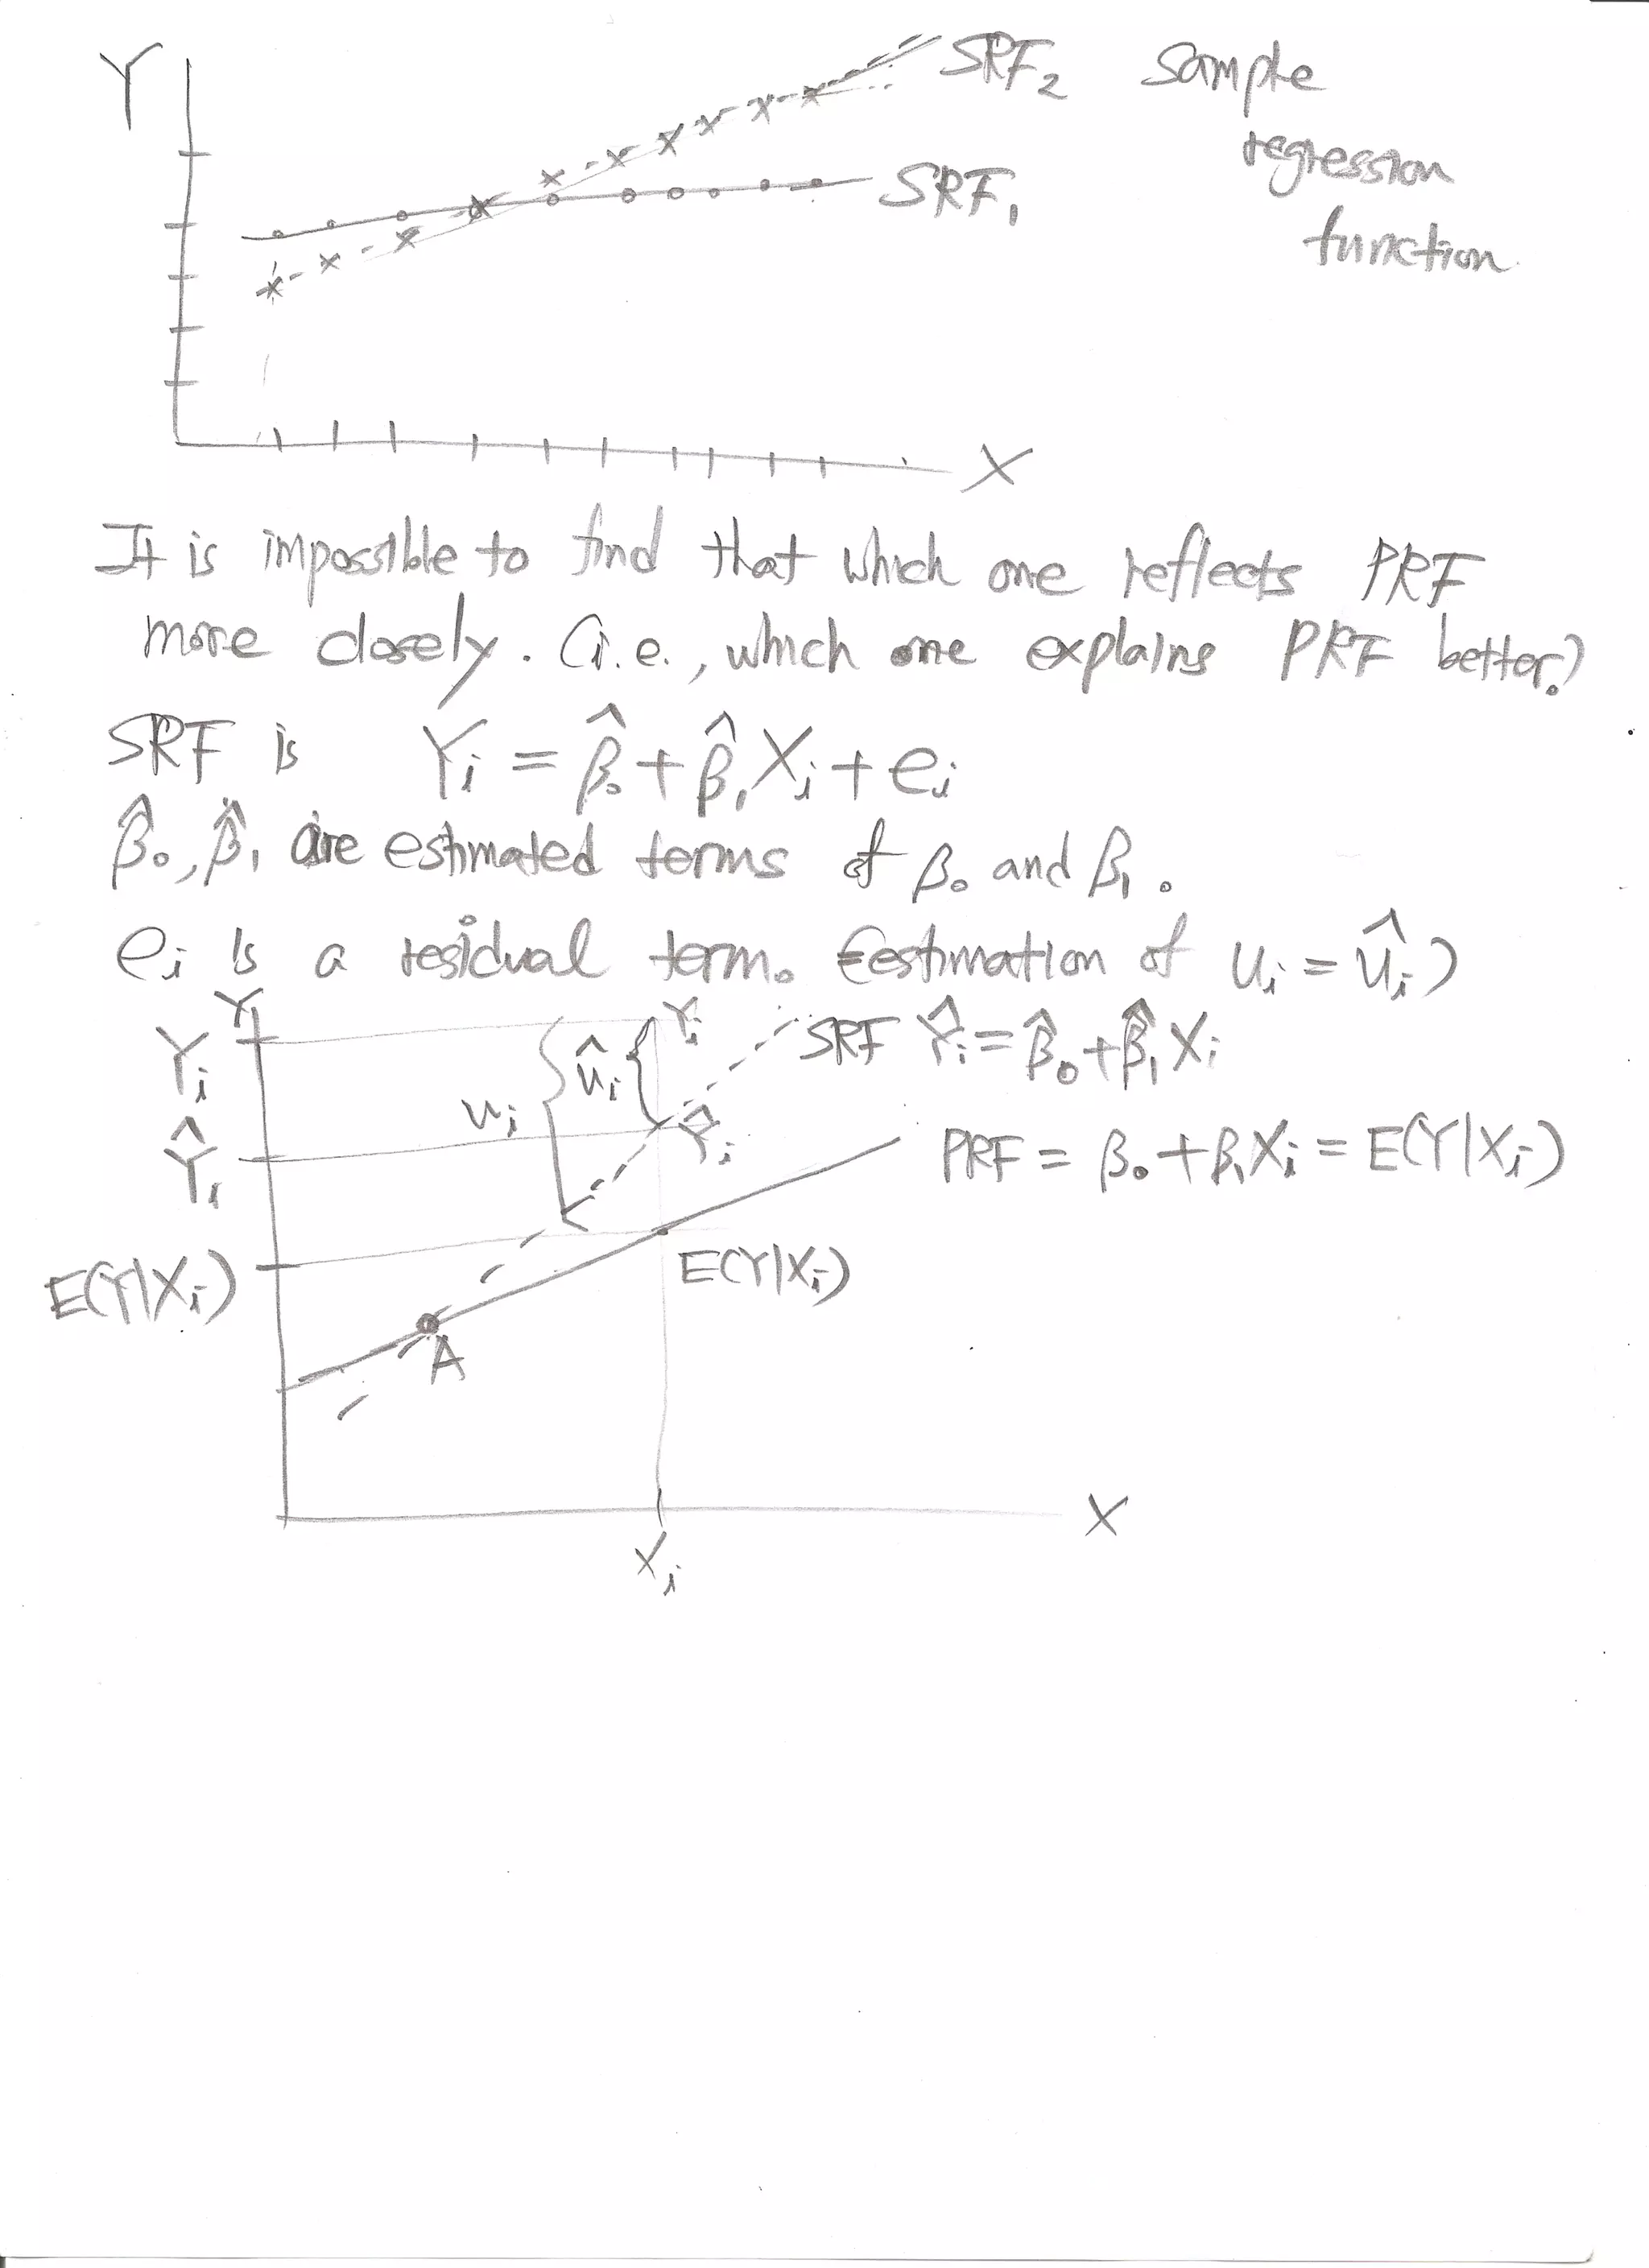 Y
SRF₂ Sample
regression
function.
SRF₁
X
It is impossible to find that which one reflects PRF
more closely. (i.e., which one explains PRF better?)
SRF is Yᵢ = β̂₀ + β̂₁Xᵢ + eᵢ
β̂₀, β̂₁ are estimated terms of β₀ and β₁.
eᵢ is a residual term. (estimation of uᵢ = ûᵢ)
Y
Yᵢ
Yᵢ
SRF Ŷᵢ = β̂₀ + β̂₁Xᵢ
ûᵢ
uᵢ
Ŷᵢ
Ŷᵢ
PRF = β₀ + β₁Xᵢ = E(Y|Xᵢ)
E(Y|Xᵢ)
E(Y|Xᵢ)
A
X
Xᵢ